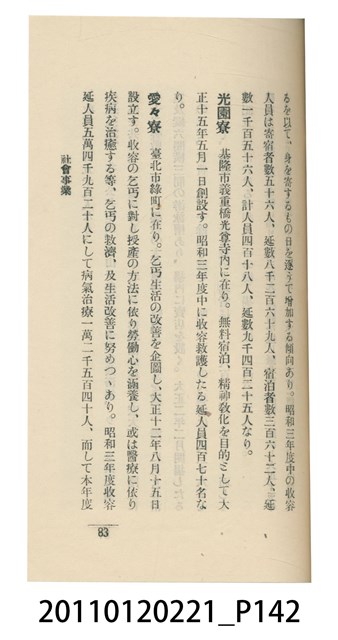 るを以て、身を寄するもの日を逐うて增加する傾向あり。昭和三年度中の收容
人員は寄宿者數五十六人、延數八千二百六十九人、宿泊者數三百六十二人、延
數一千百五十六人、計人員四百十八人、延數九千四百二十五人なり。
光園寮 基隆市義重橋光尊寺內に在り。無料宿泊、精神敎化を目的として大
正十五年五月一日創設す。昭和三年度中に收容救護したる延人員四百七十名な
り。
愛々寮 臺北市綠町に在り。乞丐生活の改善を企圖し、大正十二年八月十五日
設立す。收容の乞丐に對し授產の方法に依り勞働心を涵養し、或は醫療に依り
疾病を治癒する等、乞丐の救濟、及生活改善に努めつゝあり。昭和三年度收容
延人員五萬四千九百二十人にして病氣治療一萬二千五百四十人、而して本年度
社會事業
83
20110120221_P142